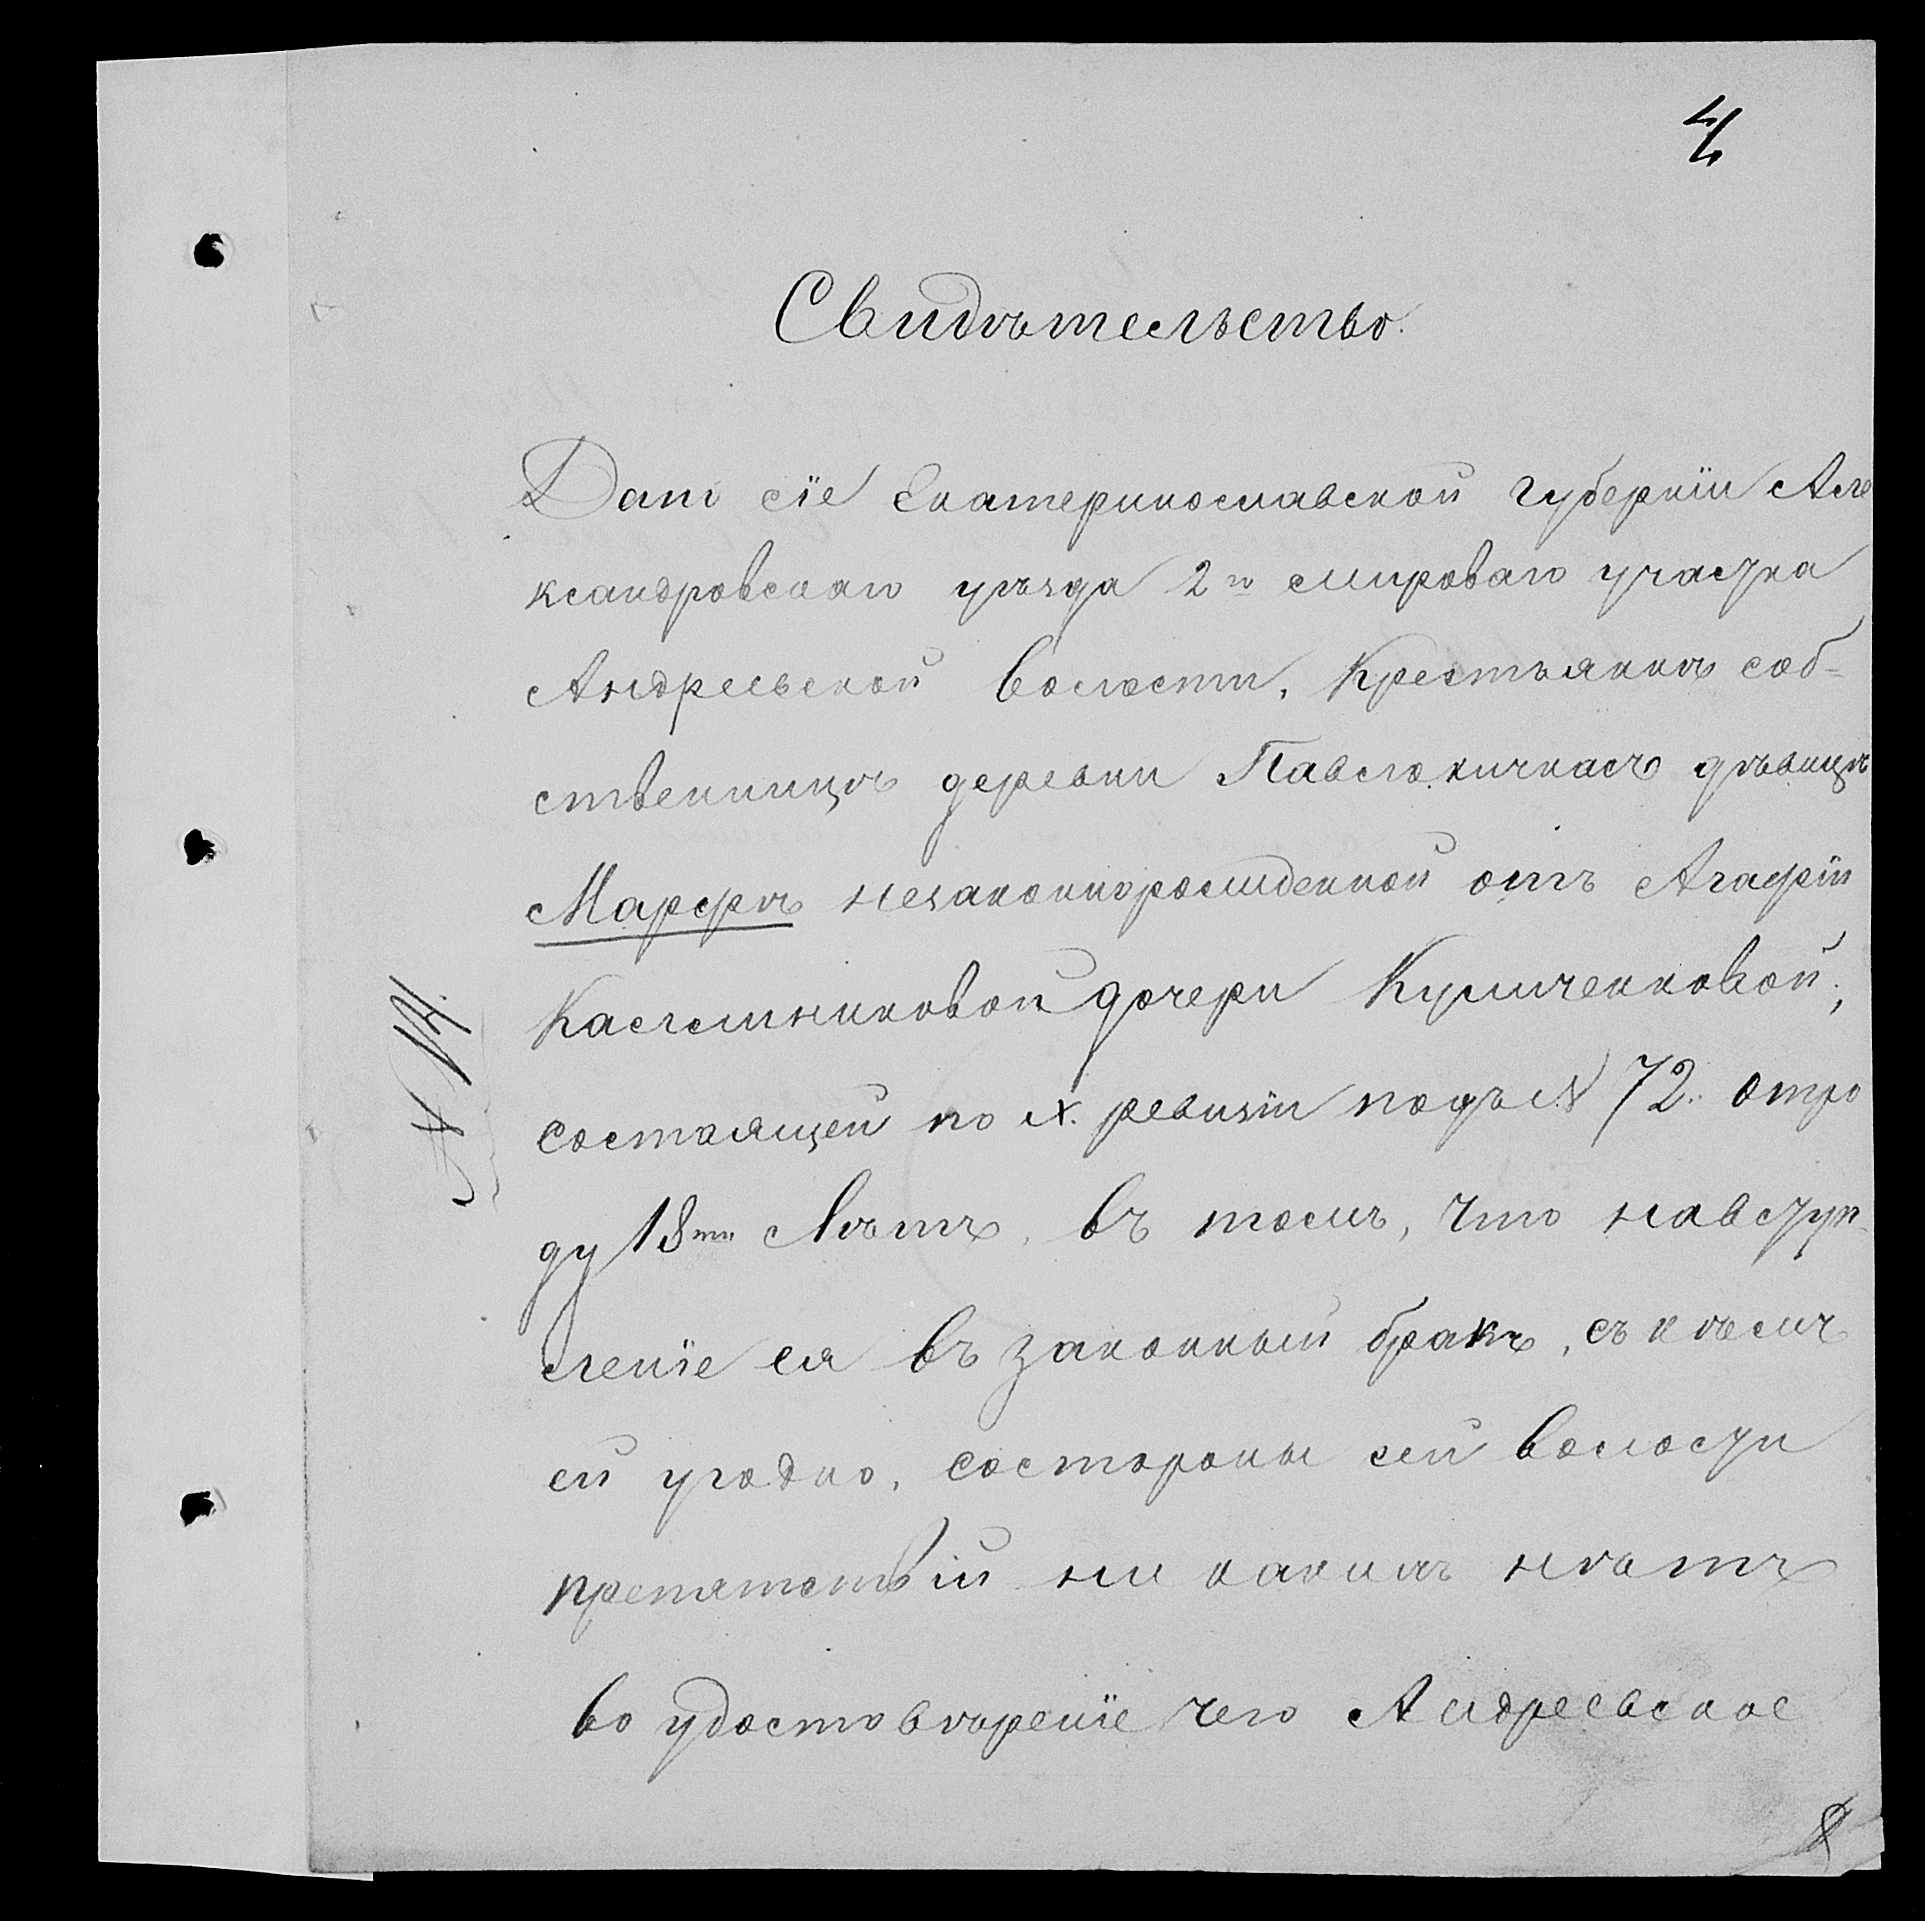 4
Свидѣтельство.
Дано сіе Екатеринославской губерніи Але
ксандровскаго уѣзда 2го мироваго участка
Андреевской волости, Крестьянкѣ соб-
ственницѣ деревни Павлокичкасъ дѣвицѣ
Марфѣ незаконнорожденной отъ Агафіи
дочери
состоящей по X. ревизіи подъ № 72. отро
ду 18ти Лѣтъ, въ томъ, что на вступ-
леніе ея въ законный бракъ, съ кѣмъ
ей угодно, состороны сей волости
препятствій ни какихъ нѣтъ
во удостовѣреніе чего Андреевское